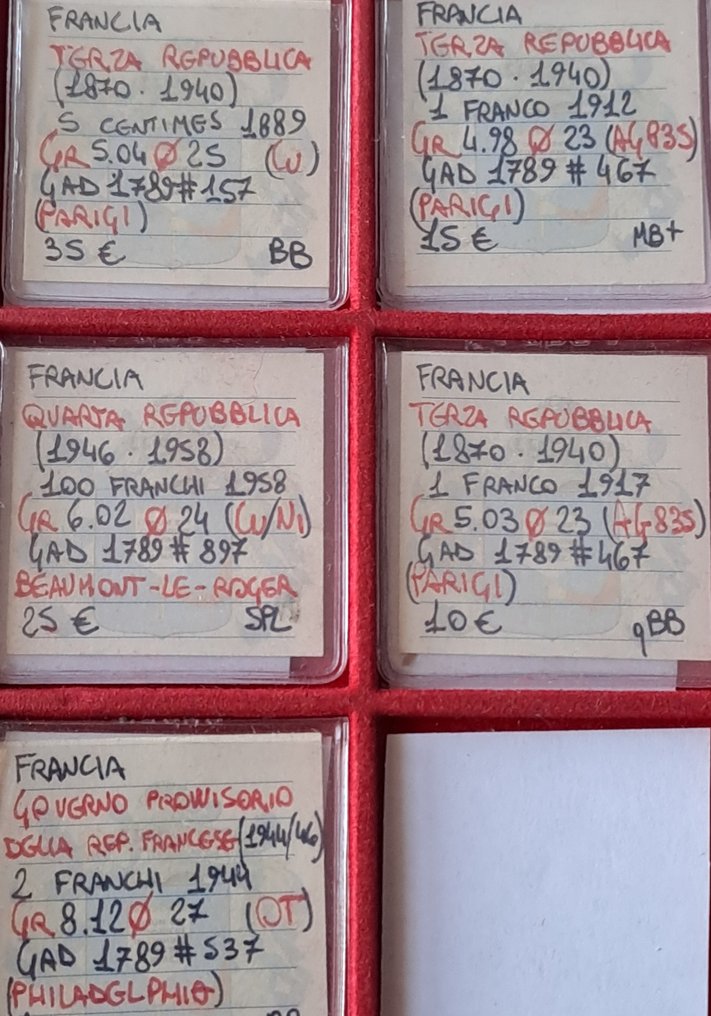 FRANCIA
TERZA REPUBBLICA
(1870 · 1940)
5 CENTIMES 1889
GR 5.04 Ø 25 (CU)
GAD 1789 # 157
(PARIGI)
35 € BB
FRANCIA
TERZA REPUBBLICA
(1870 · 1940)
1 FRANCO 1912
GR 4.98 Ø 23 (AG835)
GAD 1789 # 467
(PARIGI)
15 € MB+
FRANCIA
QUARTA REPUBBLICA
(1946 · 1958)
100 FRANCHI 1958
GR 6.02 Ø 24 (CU/NI)
GAD 1789 # 897
BEAUMONT-LE-ROGER
25 € SPL
FRANCIA
TERZA REPUBBLICA
(1870 · 1940)
1 FRANCO 1917
GR 5.03 Ø 23 (AG835)
GAD 1789 # 467
(PARIGI)
10 € qBB
FRANCIA
GOVERNO PROVVISORIO
DELLA REP. FRANCESE (1944/46)
2 FRANCHI 1944
GR 8.12 Ø 27 (OT)
GAD 1789 # 537
(PHILADELPHIA)